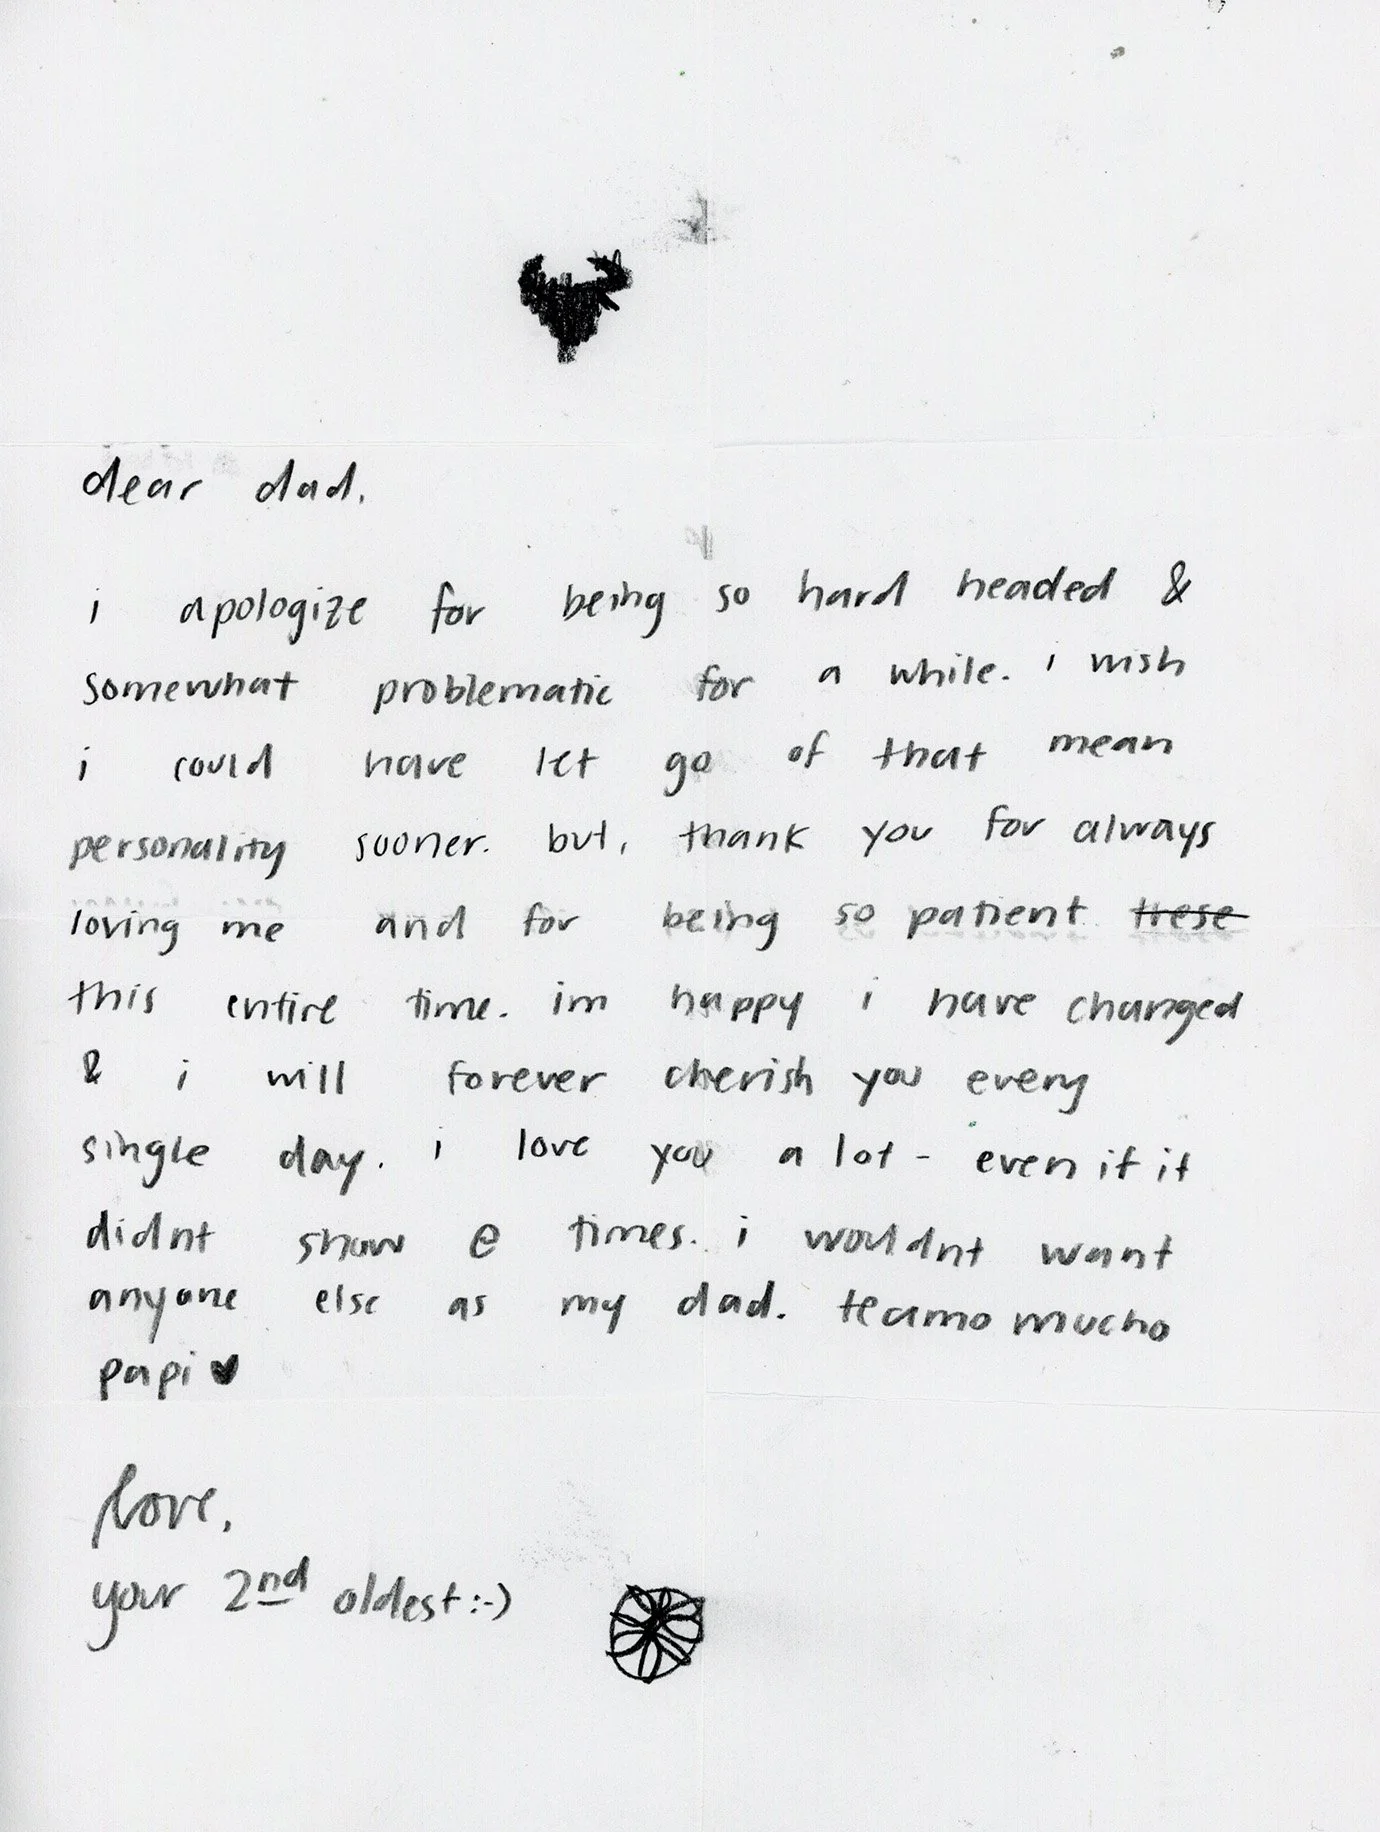 dear dad,
i apologize for being so hard headed &
somewhat problematic for a while. i wish
i could have let go of that mean
personality sooner. but, thank you for always
loving me and for being so patient ~~these~~
this entire time. im happy i have changed
& i will forever cherish you every
single day. i love you a lot - even if it
didnt show @ times. i wouldnt want
anyone else as my dad. teamo mucho
papi ♥
love,
your 2nd oldest :-)